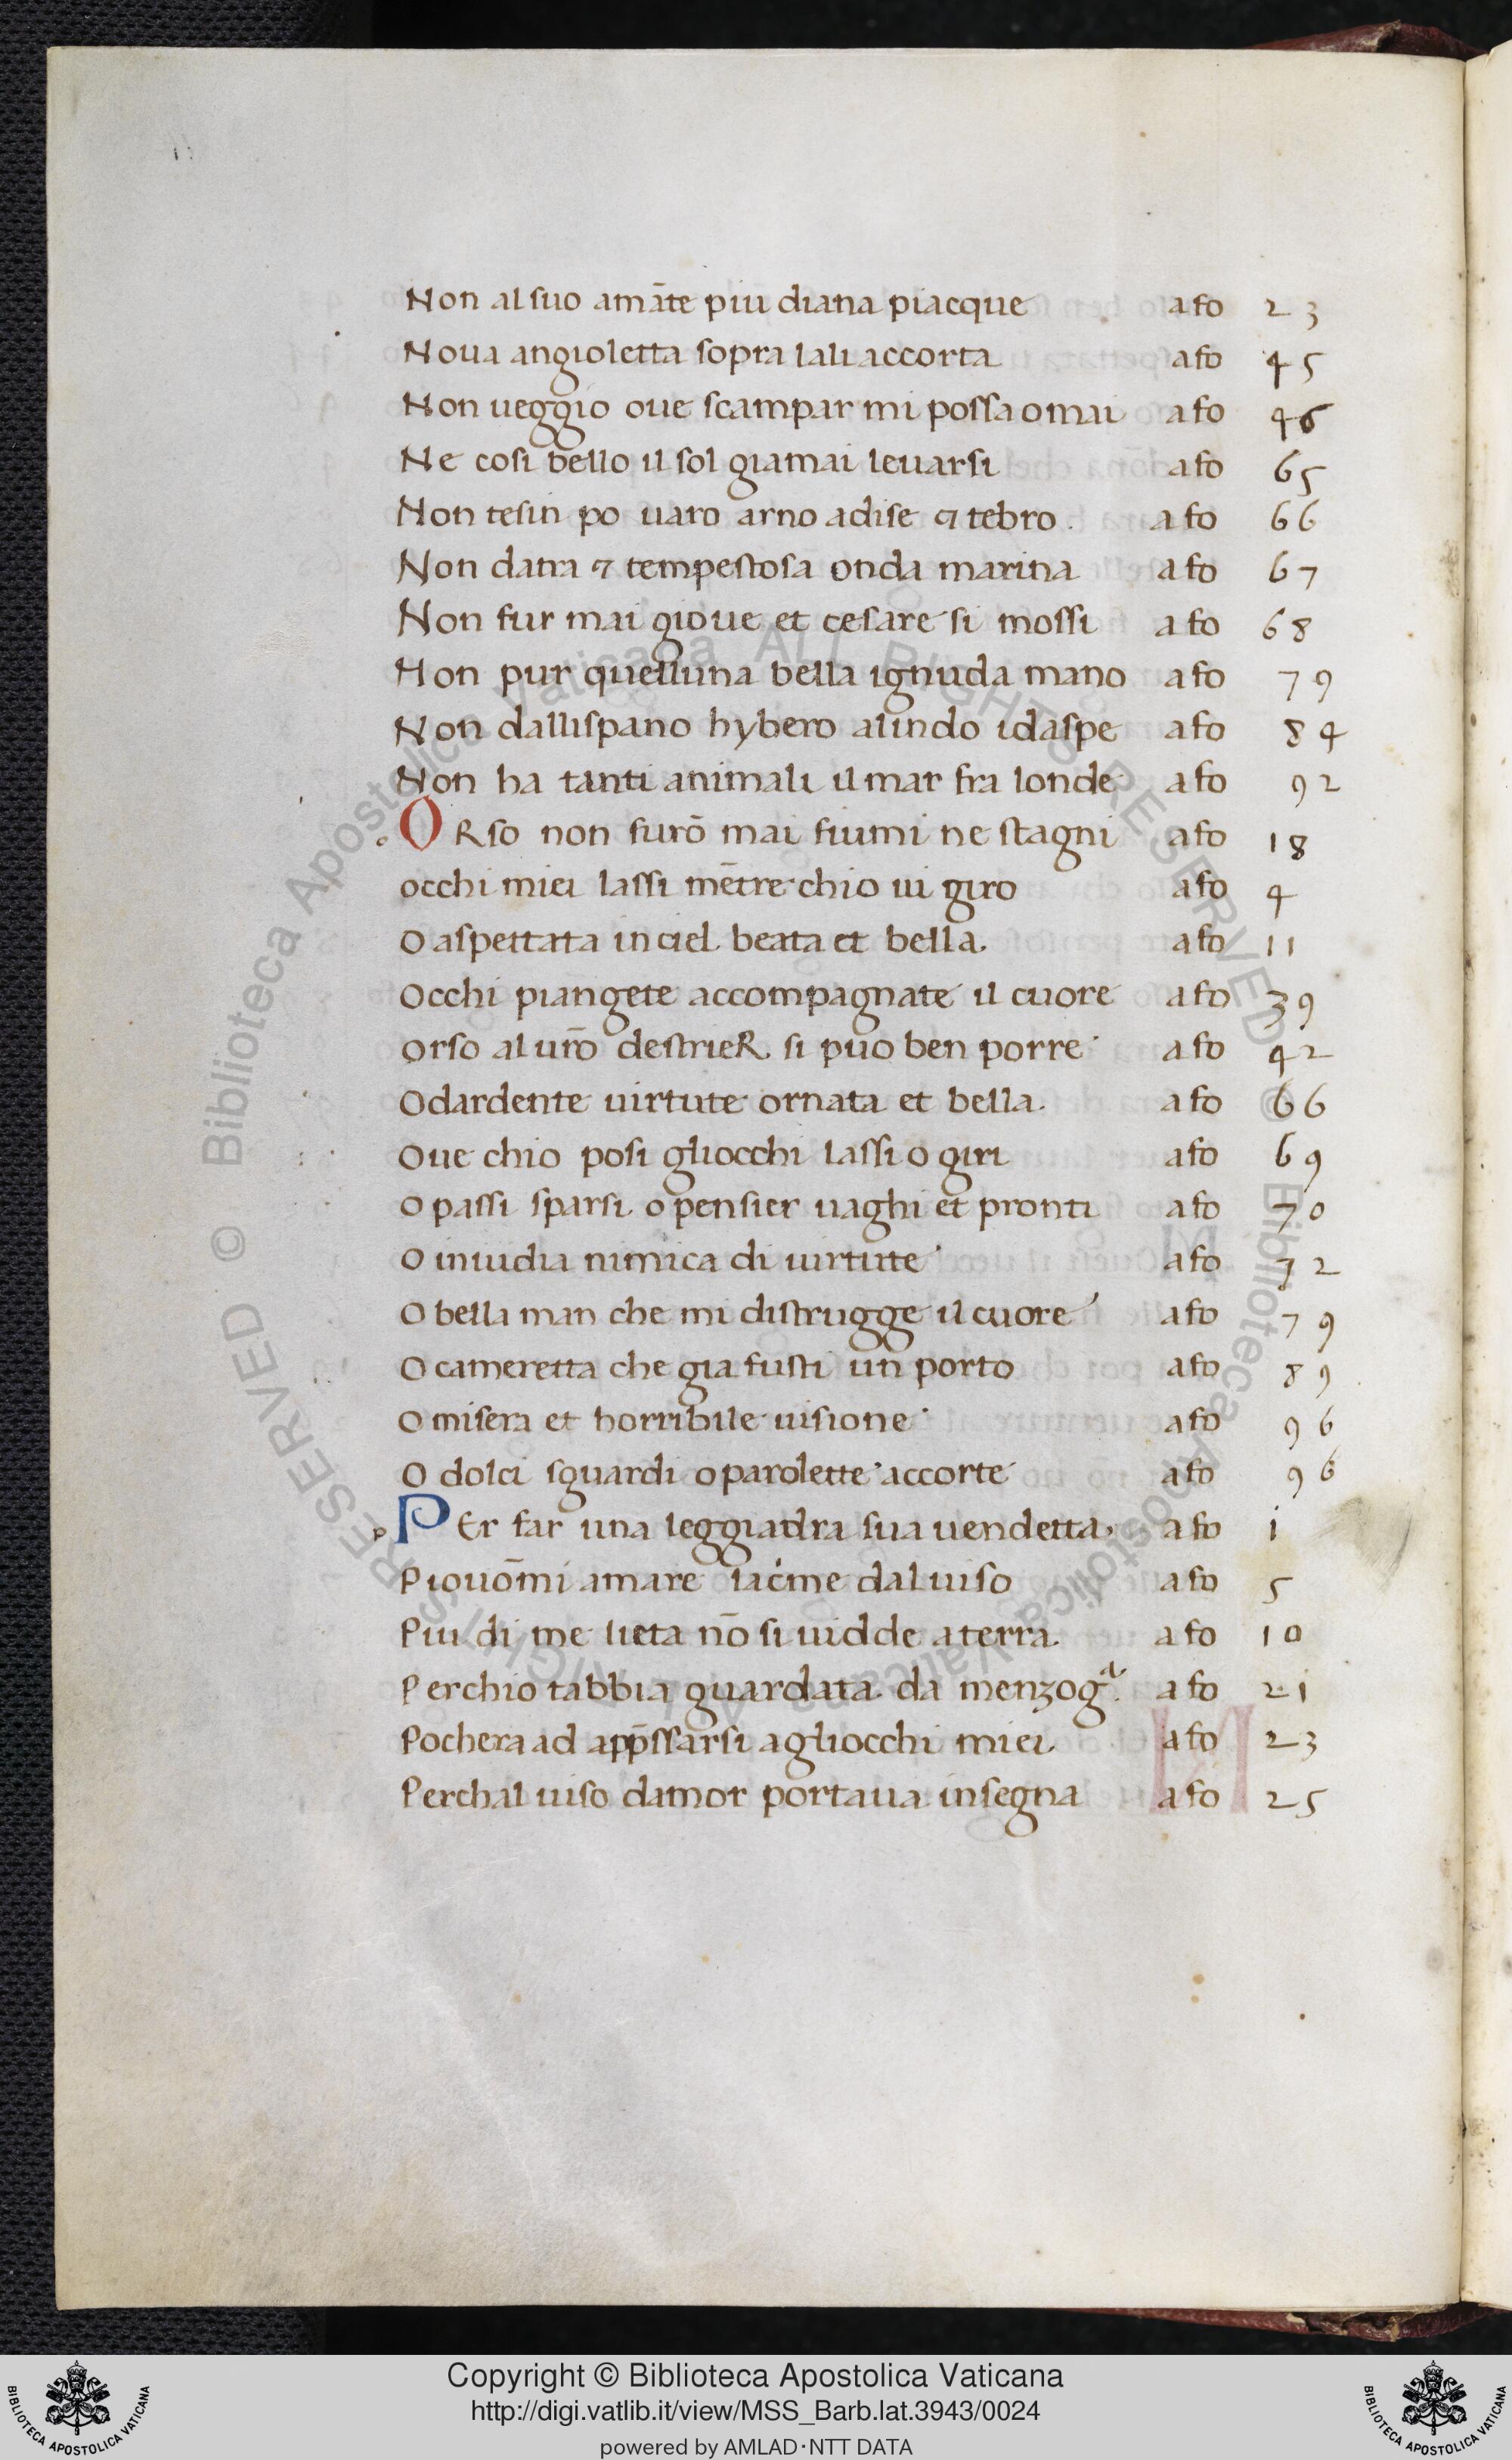 Non al suo amāte piu diana piacque a fo 23
Noua angioletta sopra lali accorta a fo 45
Non ueggio oue scampar mi possa omai a fo 46
Ne cosi bello il sol giamai leuarsi a fo 65
Non tesin po uaro arno adise ⁊ tebro . a fo 66
Non datra ⁊ tempestosa onda marina a fo 67
Non fur mai gioue et cesare si mossi a fo 68
Non pur quelluna bella ignuda mano a fo 79
Non dallispano hybero alindo idaspe a fo 84
Non ha tanti animali il mar fra londe a fo 92
o ORso non furō mai fiumi ne stagni a fo 18
occhi miei lassi mētre chio ui giro a fo 4
O aspettata in ciel beata et bella. a fo 11
Occhi piangete accompagnate il cuore a fo 39
Orso al urō destrieR si puo ben porre a fo 42
Odardente uirtute ornata et bella. a fo 66
Oue chio posi gliocchi lassi o giri a fo 69
O passi sparsi o pensier uaghi et pronti a fo 70
O inuidia nimica di uirtute a fo 72
O bella man che mi distrugge il cuore a fo 79
O cameretta che gia fusti un porto a fo 89
O misera et horribile uisione a fo 96
O dolci sguardi o parolette accorte a fo 96
p PEr far una leggiadra sua uendetta, a fo 1
Piouōmi amare lac̓me dal uiso a fo 5
Piu di me lieta nō si uidde a terra. a fo 10
Perchio tabbia guardata da menzogᵃ. a fo 21
Pochera ad app̄ssarsi agliocchi miei a fo 23
Perchal uiso damor portaua insegna a fo 25
Copyright © Biblioteca Apostolica Vaticana
http://digi.vatlib.it/view/MSS_Barb.lat.3943/0024
powered by AMLAD·NTT DATA
BIBLIOTECA APOSTOLICA VATICANA
BIBLIOTECA APOSTOLICA VATICANA
© Biblioteca Apostolica Vaticana ALL RIGHTS RESERVED © Biblioteca Apostolica Vaticana ALL RIGHTS RESERVED